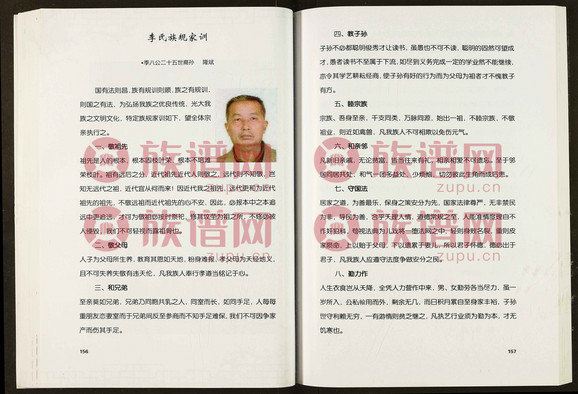 李氏族规家训
•李八公二十五世裔孙 隆斌
国有法则昌，族有规训则顺，族之有规训，
则国之有法，为弘扬我族之优良传统，光大我
族之文明文化，特定族规家训如下，望全体宗
亲执行之。
一、敬祖先
祖先是人的根本，根本固枝叶荣，根本不培难
荣枝叶。祖有远近之分，近代祖先近代人则敬之，远代则不敬，岂
知无远代之祖，近代官从何而来！因近代我之祖先，远代更和为近代
祖先的祖先，不敬远祖而近代祖先的心不安，因此，必报本中之本追
远中更追远，才可为敬祖必按时祭祀，修其坟茔为祖之所，不修必被
人侵毁，我们不可轻视而寡祖背位。
二、敬父母
人子为父母所生养，教育其恩如天地，粉身难报，孝父母为天经地义，
且不可失养失敬有违天伦，凡我族人奉行孝道当铭记于心。
三、和兄弟
至亲莫如兄弟，兄弟乃同胞共乳之人，同室而长，如同手足，人每每
重朋友恋妻室而于兄弟间反至参商而不知手足难保，我们不可因争家
产而伤其手足。
156
四、教子孙
子孙不必都聪明俊秀才让读书，虽愚也不可不读，聪明的固然可望成
才，愚者读书不至属于下流，如尽到义务完成一定的学业然不能继续，
亦令其学艺耕耘经商，使子孙有好的行为而为父母为祖者才不愧教子
有方。
五、睦宗族
宗族，吾身至亲，千支同类，万脉同源，始出一祖，不睦宗族，不敬
祖业，则近如禽兽，凡我族人不可相欺以免伤元气。
六、和亲邻
凡新旧亲戚，无论贫富，皆当往来有礼，和亲相爱不可遗忘。至于邻
居同居共处，和气一团多益处，少烦恼，切勿彼此生角而成同患。
七、守国法
居家之道，为善最乐，保身之策安分为先，国家法律尊严，无非禁民
为非，导民为善，含乎天理人情，道德常规之至，人能准情度理自不
作奸犯科，每视法典为儿戏将一堕法网之中，轻则身败名裂，重则皮
家陨命，上以贻于父母，下以遗累于妻儿，所以君子怀德，德必出于
君子，凡我族人应遵守法度争做安分之民。
八、勤力作
人生衣食岂从天降，全凭人力营作中来，男、女勤劳各当尽力，虽一
岁所入，公私输用而外，剩余无几，而日积月累自至身家丰裕，子孙
世守利赖无穷，一有游情则贫乏继之，凡执艺行业须为勤为本，才无
饥寒也。
157
族谱网
zupu.cn
族谱网
zupu.cn
族谱网
zupu.cn
族谱网
zupu.cn